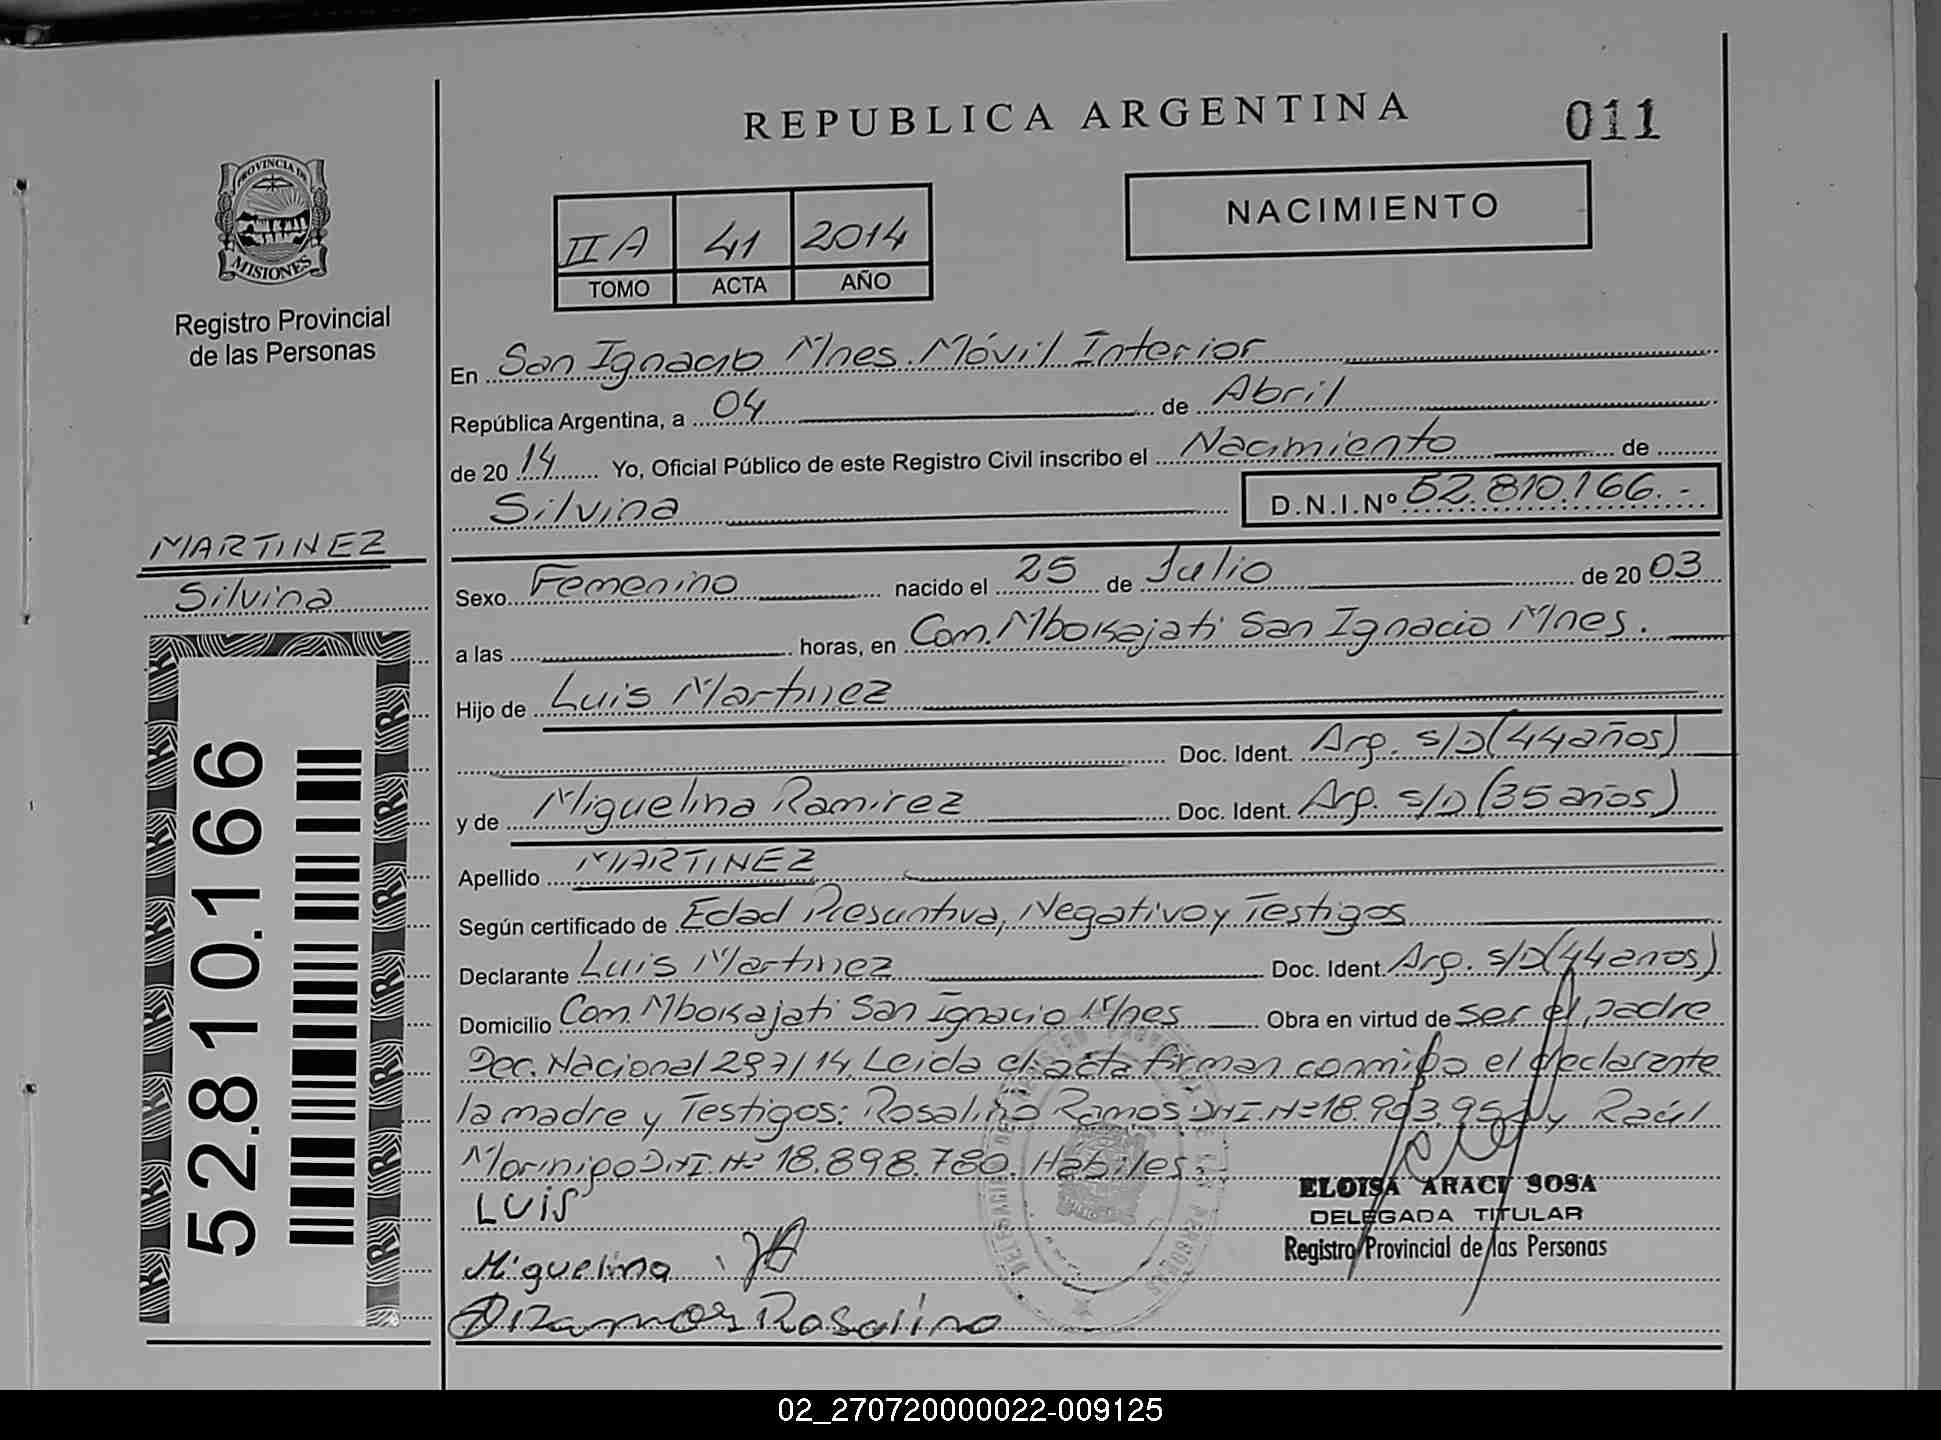 REPUBLICA ARGENTINA
011
PROVINCIA DE
MISIONES
Registro Provincial
de las Personas
NACIMIENTO
II A 41 2014
TOMO ACTA AÑO
En San Ignacio Mnes. Móvil Interior
República Argentina, a 04 de Abril
de 20 14 Yo, Oficial Público de este Registro Civil inscribo el Nacimiento de
Silvina D.N.I.Nº 52.810.166.-
MARTINEZ
Silvina
52.810.166
Sexo Femenino nacido el 25 de Julio de 20 03
a las horas, en Com. Mbokajati San Ignacio Mnes.
Hijo de Luis Martinez
Doc. Ident. Arg. S/D (44 años)
y de Miguelina Ramirez Doc. Ident. Arg. S/D (35 años)
Apellido MARTINEZ
Según certificado de Edad Presuntiva, Negativo y Testigos
Declarante Luis Martinez Doc. Ident. Arg. S/D (44 años)
Domicilio Com. Mbokajati San Ignacio Mnes Obra en virtud de ser el padre
Dec. Nacional 297/14. Leida el acta firman conmigo el declarante
la madre y Testigos: Rosalino Ramos DNI.Nº 18. y Raúl
Morinigo DNI.Nº 18.898.780. Habiles.
LUiS
Miguelina
Ramos Rosalino
ELOISA ARACI SOSA
DELEGADA TITULAR
Registro Provincial de las Personas
02_270720000022-009125